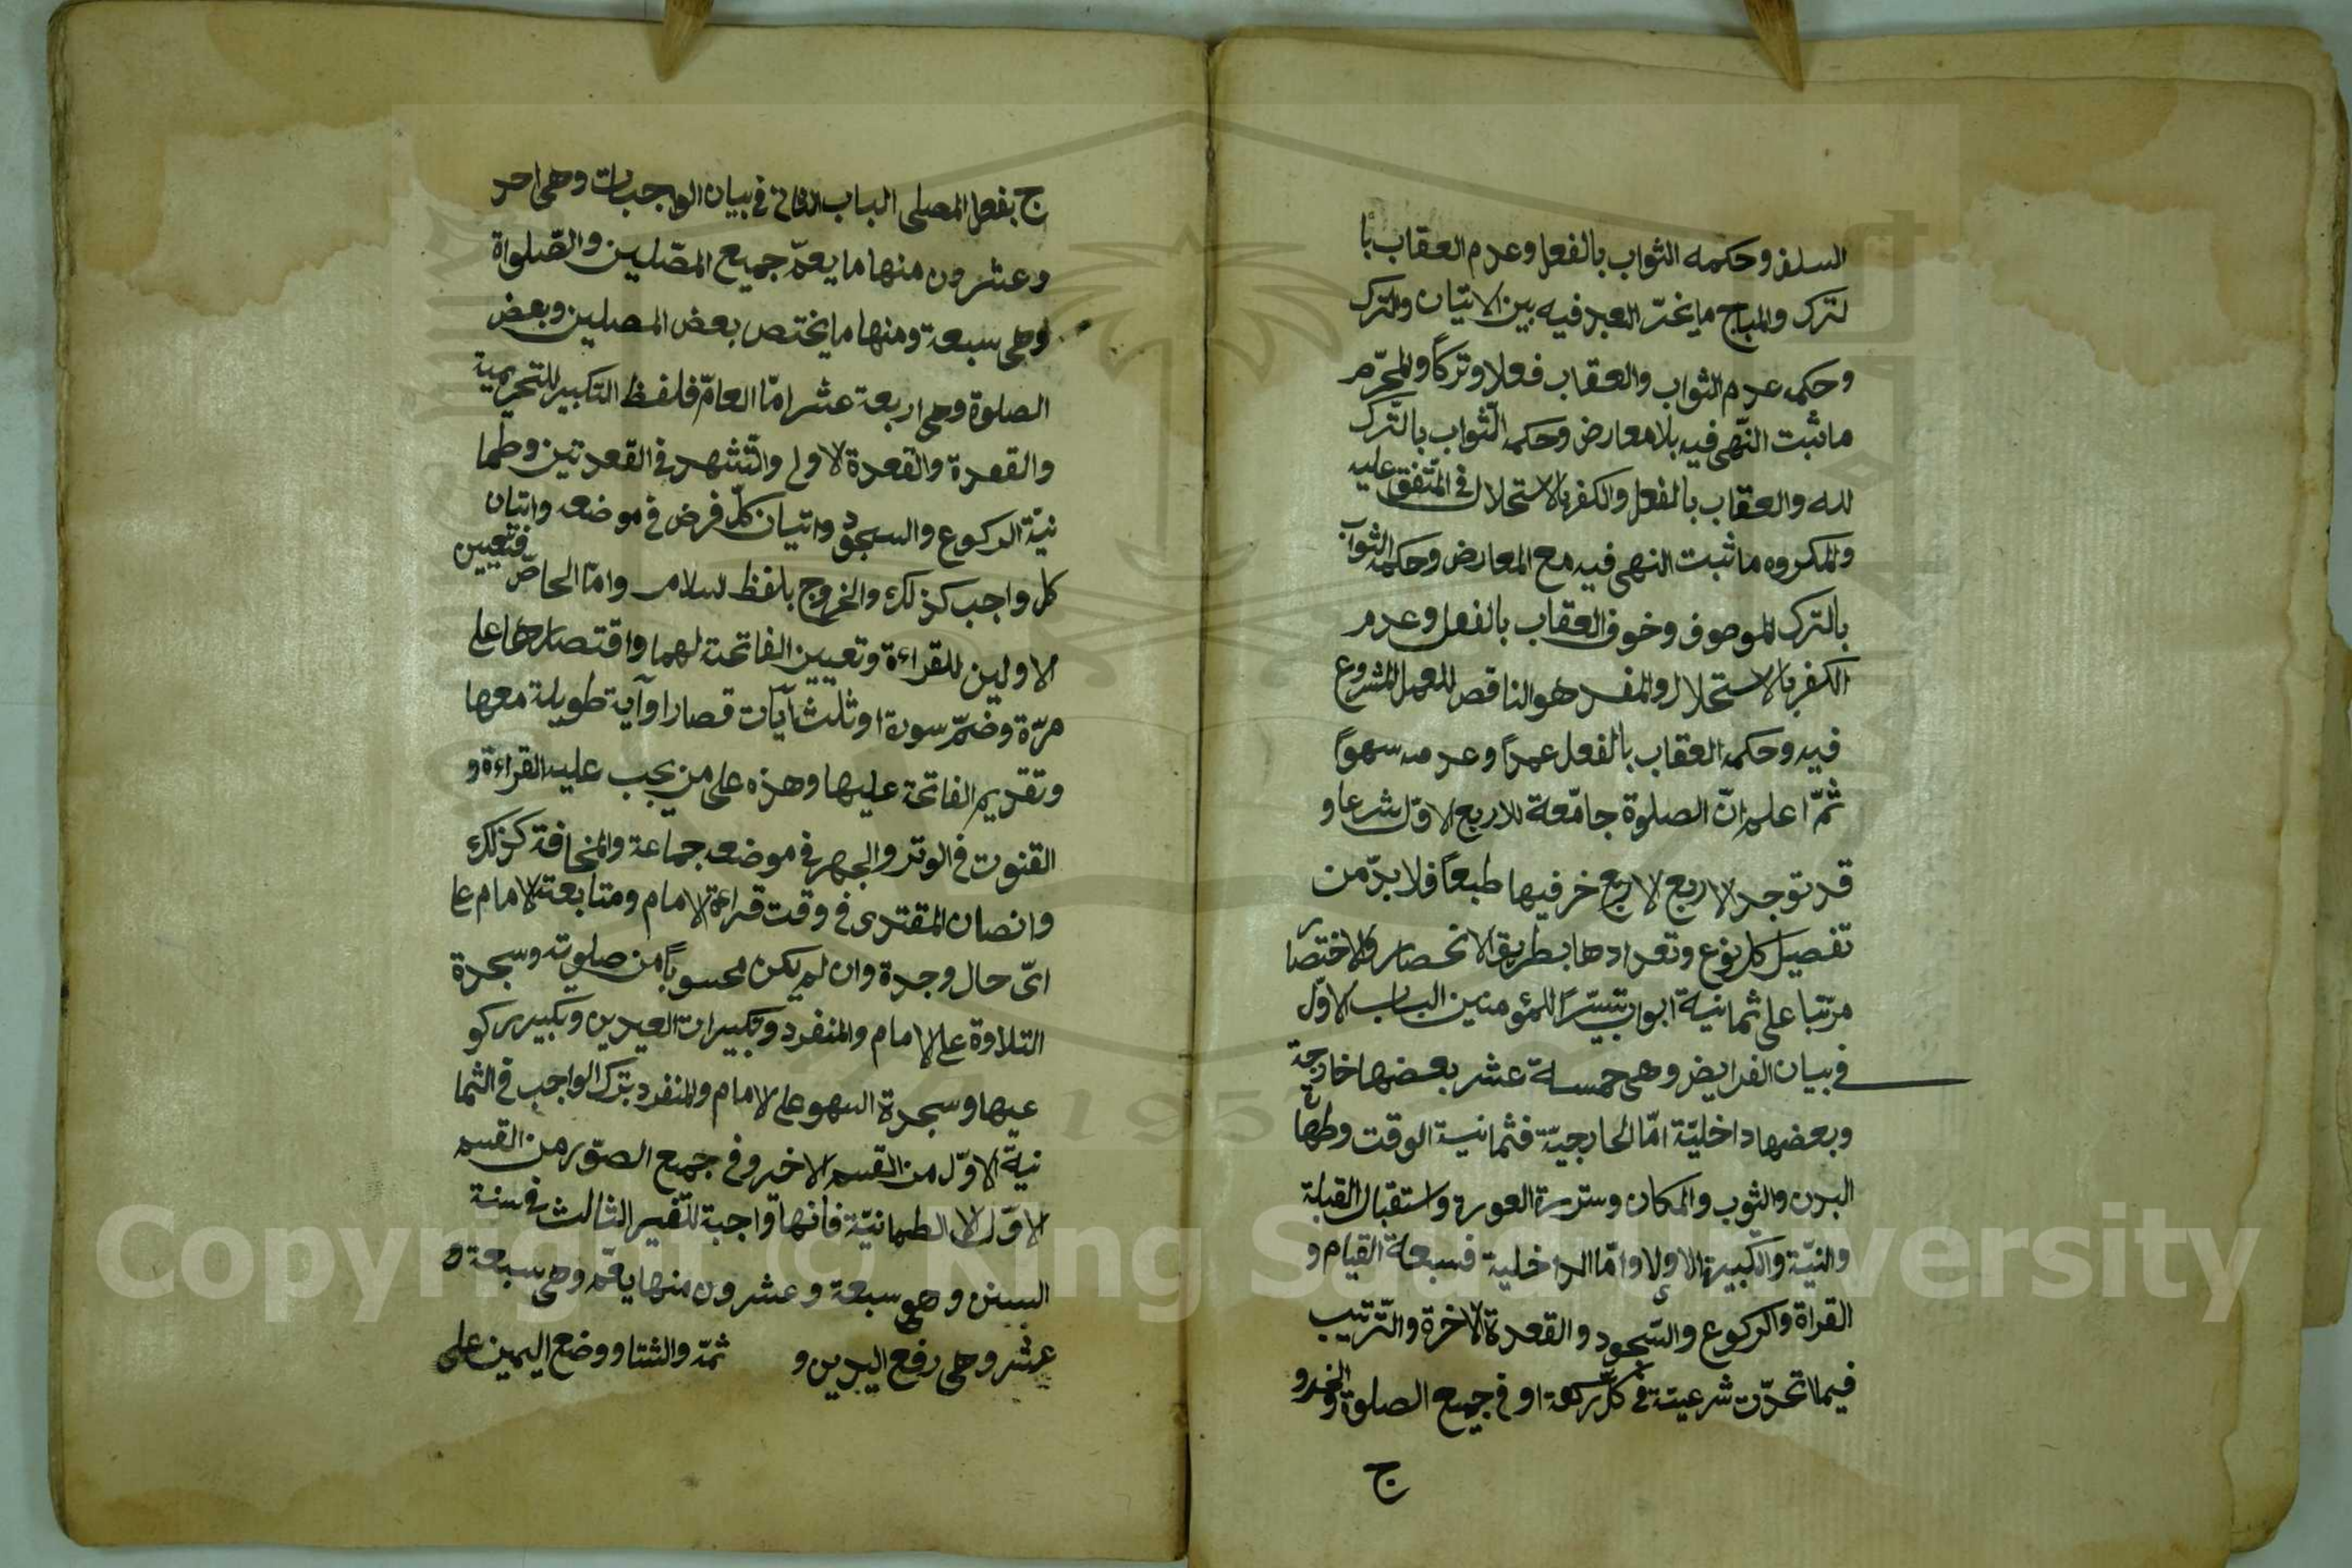 السلف وحكمه الثواب بالفعل وعدم العقاب با
لترك والمباح ما يخيّر العبد فيه بين الاتيان والترك
وحكمه عدم الثواب والعقاب فعلا وتركاً والمحرّم
ما ثبت النّهى فيه بلا معارض وحكمه الثّواب بالتّرك
لله والعقاب بالفعل والكفر بالاستحلال فى المتّفق عليه
والمكروه ما ثبت النهى فيه مع المعارض وحكمه الثواب
بالترك الموصوف وخوف العقاب بالفعل وعدم
الكفر بالاستحلال والمفسد هو الناقص للعمل المشروع
فيه وحكمه العقاب بالفعل عمداً وعدمه سهواً
ثمّ اعلم انّ الصلوة جامعة للاربع الاوّل شرعا و
قد توجد الاربع الاخر فيها طبعاً فلا بدّ من
تفصيل كل نوع وتعدادها بطريق الانحصار والاختصار
مرتّبا على ثمانية ابواب تيسّراً للمؤمنين الباب الاوّل
فى بيان الفرايض وهى خمسة عشر بعضها خارجة
وبعضها داخليّة امّا الخارجيّة فثمانية الوقت وطهارة
البدن والثوب والمكان وسترة العورة واستقبال القبلة
والنيّة والتكبيرة الاولا وامّا الداخلية فسبعة القيام و
القراة والركوع والسّجود والقعدة الاخرة والتّرتيب
فيما اتحدّت شرعيته فى كلّ ركعة او فى جميع الصلوة والخرو
ج
ج بفعل المصلى الباب الثانى فى بيان الواجبات وهى احد
وعشرون منها ما يعمّ جميع المصّلين والصّلواة
وهى سبعة ومنها ما يختص بعض المصلين وبعض
الصلوة وهى اربعة عشر امّا العامّ فلفظ التكبير للتحريمية
والقعدة والقعدة الاولى والتّشهد فى القعدتين وطما
نيّة الركوع والسجود واتيان كلّ فرض فى موضعه واتيان
كل واجب كذلك والخروج بلفظ السلام وامّا الخاصّ فتعيين
الاولين للقراءة وتعيين الفاتحة لهما واقتصارها على
مرّة وضمّ سورة او ثلث آيات قصار او آية طويلة معها
وتقديم الفاتحة عليها وهذه على من يجب عليه القراءة و
القنوت فى الوتر والجهر فى موضعه جماعة والمخافة كذلك
وانصات المقتدى فى وقت قراءة الامام ومتابعة الامام على
اىّ حال وجدة وان لم يكن محسوباً من صلوته وسجدة
التلاوة على الامام والمنفرد وتكبيرات العيدين وتكبير ركو
عيها وسجدة السهو على الامام والمنفرد بترك الواجب فى الثما
نية الاوّل من القسم الاخير وفى جميع الصّور من القسم
الاوّل الا الطمانيّة فانها واجبة للتغير الثالث فى سنة
السنن وهى سبعة وعشرون منها يعمّ وهى سبعة و
عشر وهى رفع اليدين و ثمّة والثنا ووضع اليمين على